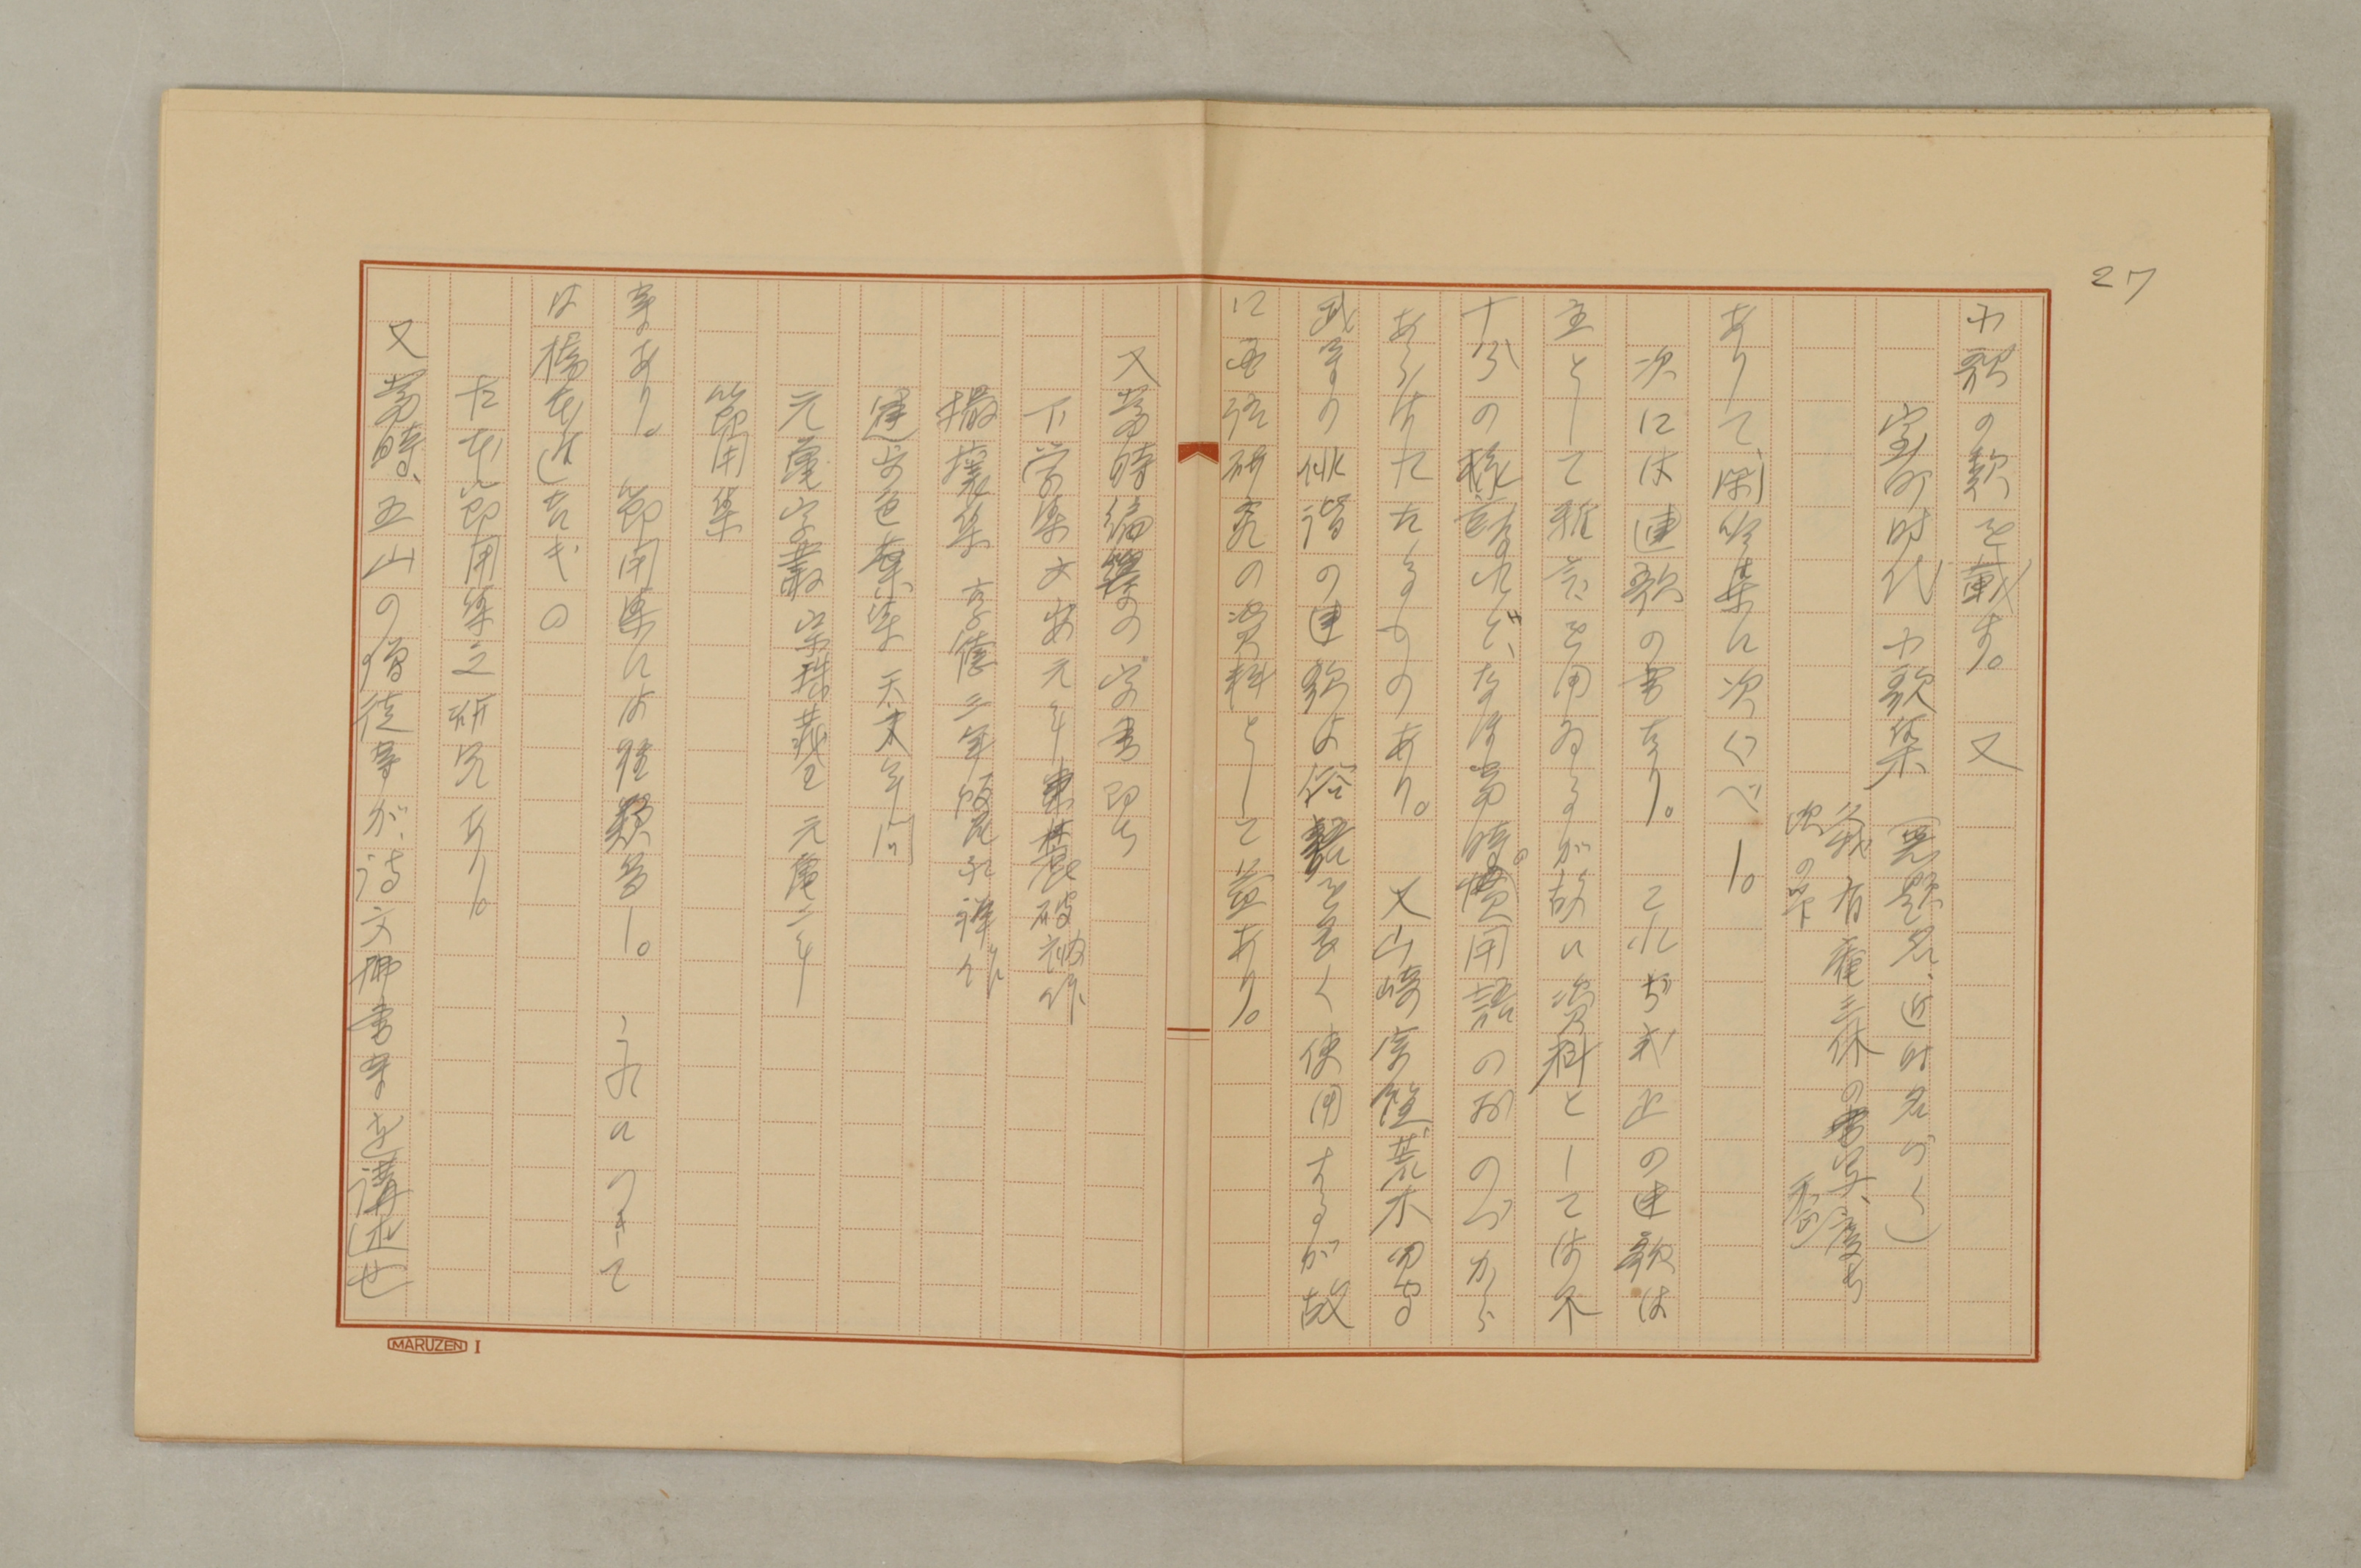 27
小歌の歌を載す。　又
室町時代小歌集（無題名、近時名づく）
ありて、閑吟集に次ぐべし。
次には連歌の書なり。これが式正の連歌は
主として雅言を用ゐるが故に資料としては不
十分の様なれど、なほ当時の慣用語のおのづから
あらはれたるものあり。　又山崎宗鑑荒木田守
武等の俳諧の連歌は俗語を多く使用するが故
に国語研究の資料として益あり。
又当時編纂の字書即ち
下学集　文安元年東麓破衲作
撮壌集　享徳三年飯尾永祥作
運歩色葉集　天文年間
元亀字叢　宗珠蔵主　元亀二年
節用集
等あり。　節用集には種類多し。これにつきて
は橋本進吉氏の
古本節用集之研究あり。
又当時、五山の僧徒等が、詩文佛書等を講述せ
MARUZEN I